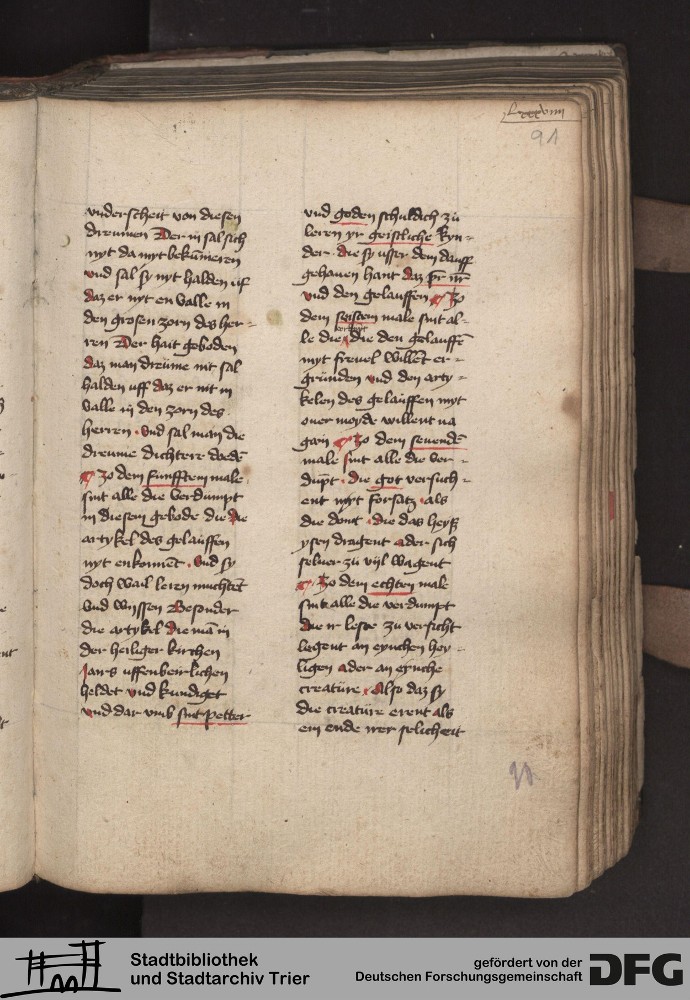 91
vnderscheit von diesen
dreumen Der in sal sich
nyt da myt bekūmeren
vnd sal sy nyt halden uf
daz er nyt en valle in
den grosen zorn des her=
ren Der hait geboden
daz man dreüme nit sal
halden uff daz er nit in
valle in den zorn des
herren · vnd sal man die
dreume dichterie
¶ zo dem funfftem male
sint alle die verdumpt
in diesem gebode die die
artykel des gelauffen
nyt enkonnēt · vnd sy
doch wail leren muchtēt
vnd wyssen Besonder
die artykel die mā in
der heiliger kirchen
Jairs uffenbeirlichen
heldet vnd kundiget
vnd dar vmb sint petter
vnd goden schuldich zü
leren yr geistliche kyn=
der · die sy usser dem dauff
gehauen hant daz pr̄ nr̄
vnd den gelauffen ¶ zo
dem seisten male sint al=
le die die den gelauffē
myt freuel willēt er=
gründen vnd den arty=
kelen des gelauffen myt
ouer moyde willent na
gain ¶ zo dem seuendē
male sint alle die ver=
dūpt · die got versuch=
ent myt forsatz · als
die dont · die das heyß
ysen dragent ader sich
seluer zü vijl wagent
¶ zo dem echten male
sint alle die verdumpt
die ir leste zü versicht
legent an eynchen hey=
ligen ader an eynche
creatüre · Also daz sy
die creatüre erent als
ein ende irer selicheit
91
Stadtbibliothek
und Stadtarchiv Trier
gefördert von der
Deutschen Forschungsgemeinschaft
DFG